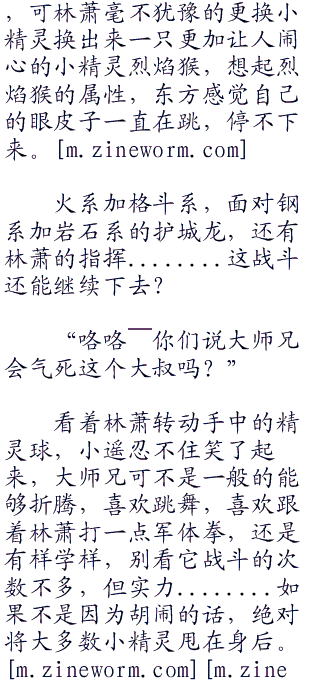 ，可林萧毫不犹豫的更换小
精灵换出来一只更加让人闹
心的小精灵烈焰猴，想起烈
焰猴的属性，东方感觉自己
的眼皮子一直在跳，停不下
来。[m.zineworm.com]
火系加格斗系，面对钢
系加岩石系的护城龙，还有
林萧的指挥........这战斗
还能继续下去？
“咯咯￣你们说大师兄
会气死这个大叔吗？”
看着林萧转动手中的精
灵球，小遥忍不住笑了起
来，大师兄可不是一般的能
够折腾，喜欢跳舞，喜欢跟
着林萧打一点军体拳，还是
有样学样，别看它战斗的次
数不多，但实力........如
果不是因为胡闹的话，绝对
将大多数小精灵甩在身后。
[m.zineworm.com][m.zine